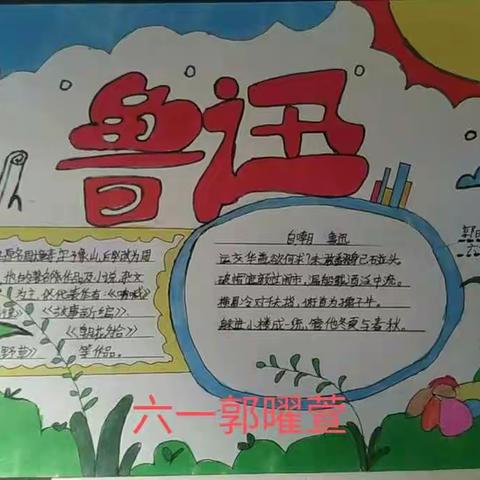 鲁迅
原名周樟寿,字豫山,后改为周
他的著名作品及小说,杂文
为主,以代表作有:《呐喊》
《故事新编》
《朝花夕拾》
野草》 等作品。
自嘲 鲁迅
运交华盖欲何求,未敢翻身已碰头
破帽遮颜过闹市,漏船载酒泛中流。
横眉冷对千夫指,俯首为孺子牛。
躲进小楼成一统,管他冬夏与春秋。
六一郭曜萱